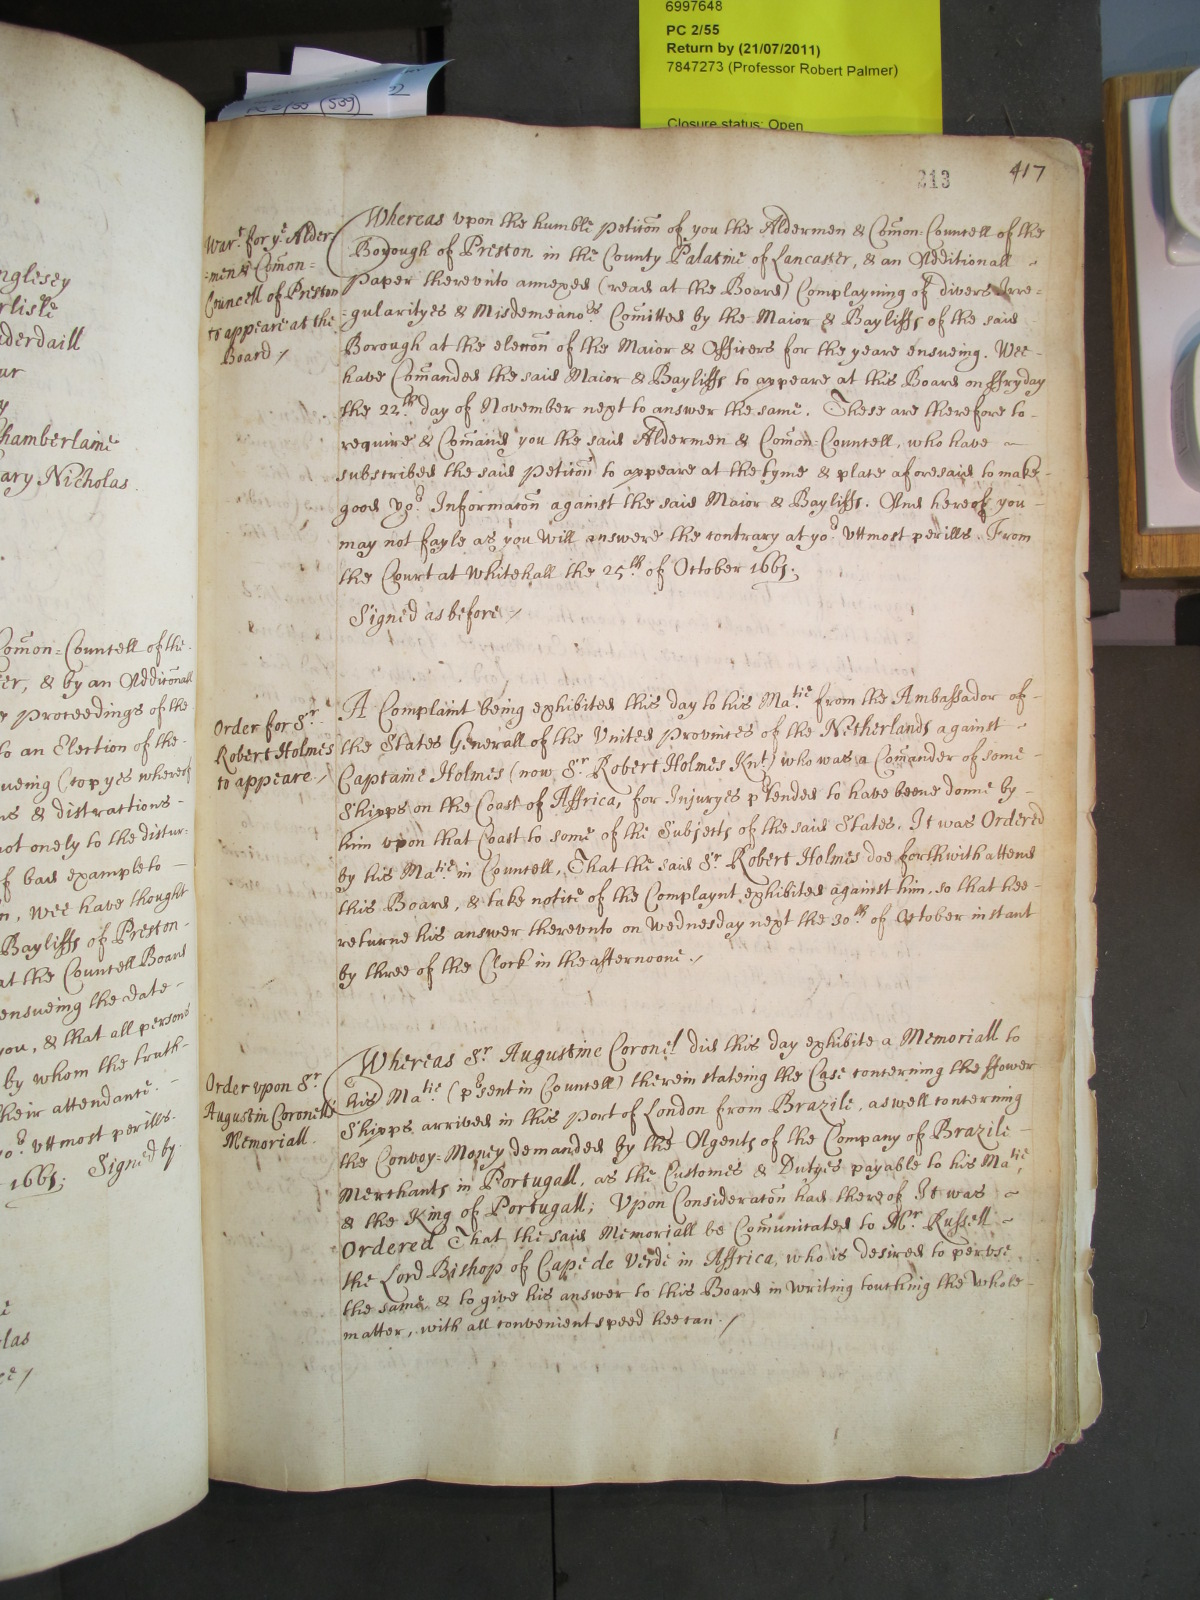 6997648
PC 2/55
Return by (21/07/2011)
7847273 (Professor Robert Palmer)
Closure status: Open
213
417
nglesey
rlisle
derdaill
ur
y
hamberlaine
ary Nicholas.
Comon=Councell of the
er, & by an Additionall
proceedings of the
to an Election of the
sueing (copyes whereof
ns & distractions
not onely to the distur-
f bad example to
n, wee have thought
Bayliffs of Preston
at the Councell Board
ensueing the date
you, & that all persons
by whom the truth
their attendance.
yor. uttmost perills.
1661; Signed by
las
Warrt. for ye. Alder-
=men & Comon=
Councell of Preston
to appeare at the
Board /
Whereas upon the humble peticon of you the Aldermen & Comon=Councell of the
Borough of Preston in the County Palatine of Lancaster, & an Additionall
paper thereunto annexed (read at the Board) Complayning of divers Irre=
=gularityes & Misdemeanors Comitted by the Maior & Bayliffs of the said
Borough at the eleccon of the Maior & Officers for the yeare ensueing. Wee
have Comanded the said Maior & Bayliffs to appeare at this Board on ffryday
the 22th. day of November next to answer the same. These are therefore to
require & Comand you the said Aldermen & Comon=Councell, who have
subscribed the said peticon to appeare at the tyme & place aforesaid to make
good yor. Informacon against the said Maior & Bayliffs. And hereof you
may not fayle as you will answere the contrary at yor. uttmost perills. From
the Court at Whitehall the 25th. of October 1661;
Signed as before /
Order for Sr.
Robert Holmes
to appeare /
A Complaint being exhibited this day to his Matie. from the Ambassador of
the States Generall of the United Provinces of the Netherlands against
Captaine Holmes (now Sr. Robert Holmes Knt.) who was a Comander of some
Shipps on the Coast of Affrica, for Injuryes ptended to have beene donne by
him upon that Coast to some of the Subjects of the said States. It was Ordered
by his Matie. in Councell, That the said Sr. Robert Holmes doe forthwith attend
this Board, & take notice of the Complaynt exhibited against him, so that hee
returne his answer thereunto on Wednesday next the 30th. of October instant
by three of the Clock in the afternoone. /
Order upon Sr.
Augustin Coronells
Memoriall.
Whereas Sr. Augustine Coronel did this day exhibite a Memoriall to
his Matie. (psent in Councell) therein stateing the Case concerning the ffower
Shipps arrived in this Port of London from Brazile, aswell concerning
the Convoy=Money demanded by the Agents of the Company of Brazile
Merchants in Portugall, as the Customes & Dutyes payable to his Matie,
& the King of Portugall; Upon Consideracon had thereof It was
Ordered That the said Memoriall be Comunicated to Mr. Russell
the Lord Bishop of Cape de Verde in Affrica, who is desired to peruse
the same, & to give his answer to this Board in writing touching the whole
matter, with all convenient speed hee can. /